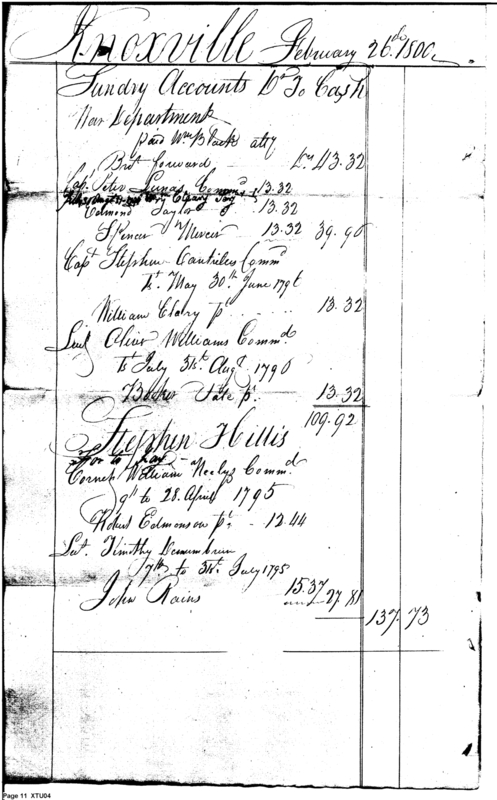 Knoxville February 26th 1800
Sundry Accounts Dr To Cash
War Department
paid Wm Black atty
Brot forward Drs 43.32
Capt Peter Command 13.32
Edmond Taylor 13.32
Spencer Mercer 13.32 39.96
Capt Stephen Cantrills Commd
1st May 30th June 1796
William Clary pt 13.32
Lieut Oliver Williams Commd
1st July 31st Augt 1790
Tate pt. 13.32
109.92
Stephen Hillis
Cornet William Neelys Commd
9th to 28. April 1795
Robert Edmonson pt. 12.44
Lut. Timothy Demumbrun
7th to 31st July 1795
John Rains 15.37
27 81
137.73
Page 11 XTU04